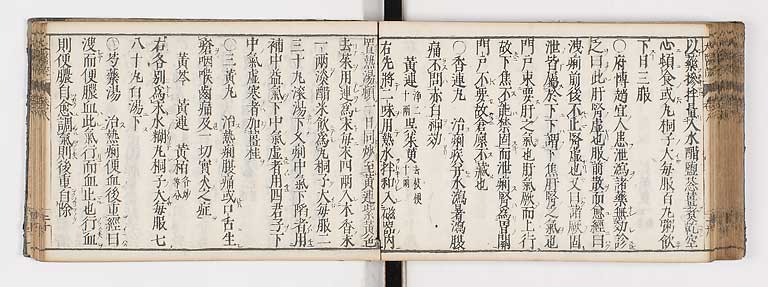 以藥摻拌煮入水醋鹽葱
心頓食或丸桐子大每服百九粥飲
下日三服
○府博趙宜人患泄瀉諸藥無効診
之曰此肝腎虚也服前散而愈經曰
泄痢前後不止腎虚也又曰諸厥固
泄皆屬於下下謂下焦肝腎之氣也
門戸束要肝之氣也肝氣厥而上行
故下焦不能禁固而泄痢腎爲胃關
門戸不要故倉廩不藏也
○香連丸 治痢疾分水瀉暑瀉腹
痛不問赤白神効
黃連 淨二十兩 吳茱萸 去枝梗十兩
右先將二味用熱水拌和入磁器內
置熱湯頓一日同炒至黃連紫黃色
去茱用連爲末每末四兩入木香末
一兩淡醋米飮爲丸桐子大每服二
三十九滚湯下久痢中氣下陷者用
補中益氣下中氣虚者用四君子下
中氣虚寒者加薑桂
○三黃丸 治熱痢腹痛或口舌生
瘡咽喉齒痛及一切實火之症
黃芩 黃連 黃栢 各炒等分
右各別爲末水糊丸桐子大每服七
八十丸白湯下
○芍藥湯 治熱痢便血後重經曰
溲而便膿血此氣行而血止也行血
則便膿自愈調氣則後重自除